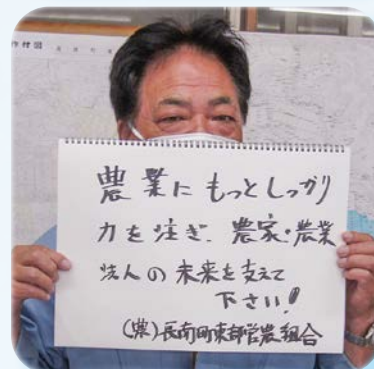 作付図
農業にもっとしっかり
力を注ぎ、農家・農業
法人の未来を支えて
下さい!
(農)長南町東部営農組合